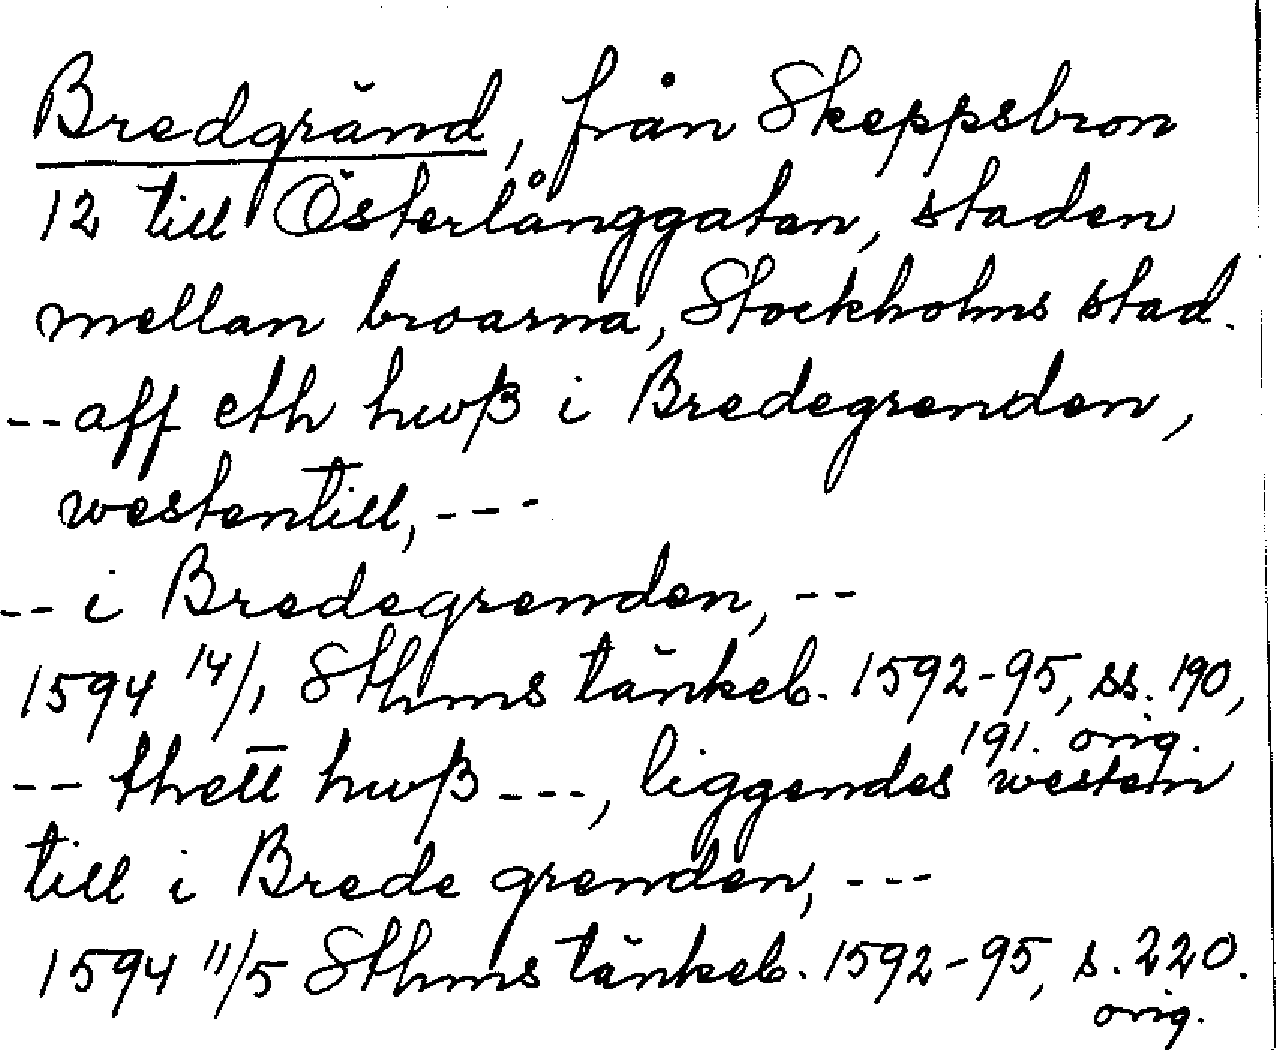 Bredgränd, från Skeppsbron
12 till Österlånggatan, staden
mellan broarna, Stockholms stad.
-- aff eth hwß i Bredegrenden,
westentill, ---
-- i Bredegrenden, --
1594 14/1, Sthms tänkeb. 1592-95, ss. 190,
191. orig.
-- thett hwß ---, liggendes westem
till i Brede grenden, ---
1594 11/5 Sthms tänkeb. 1592-95, s. 220.
orig.